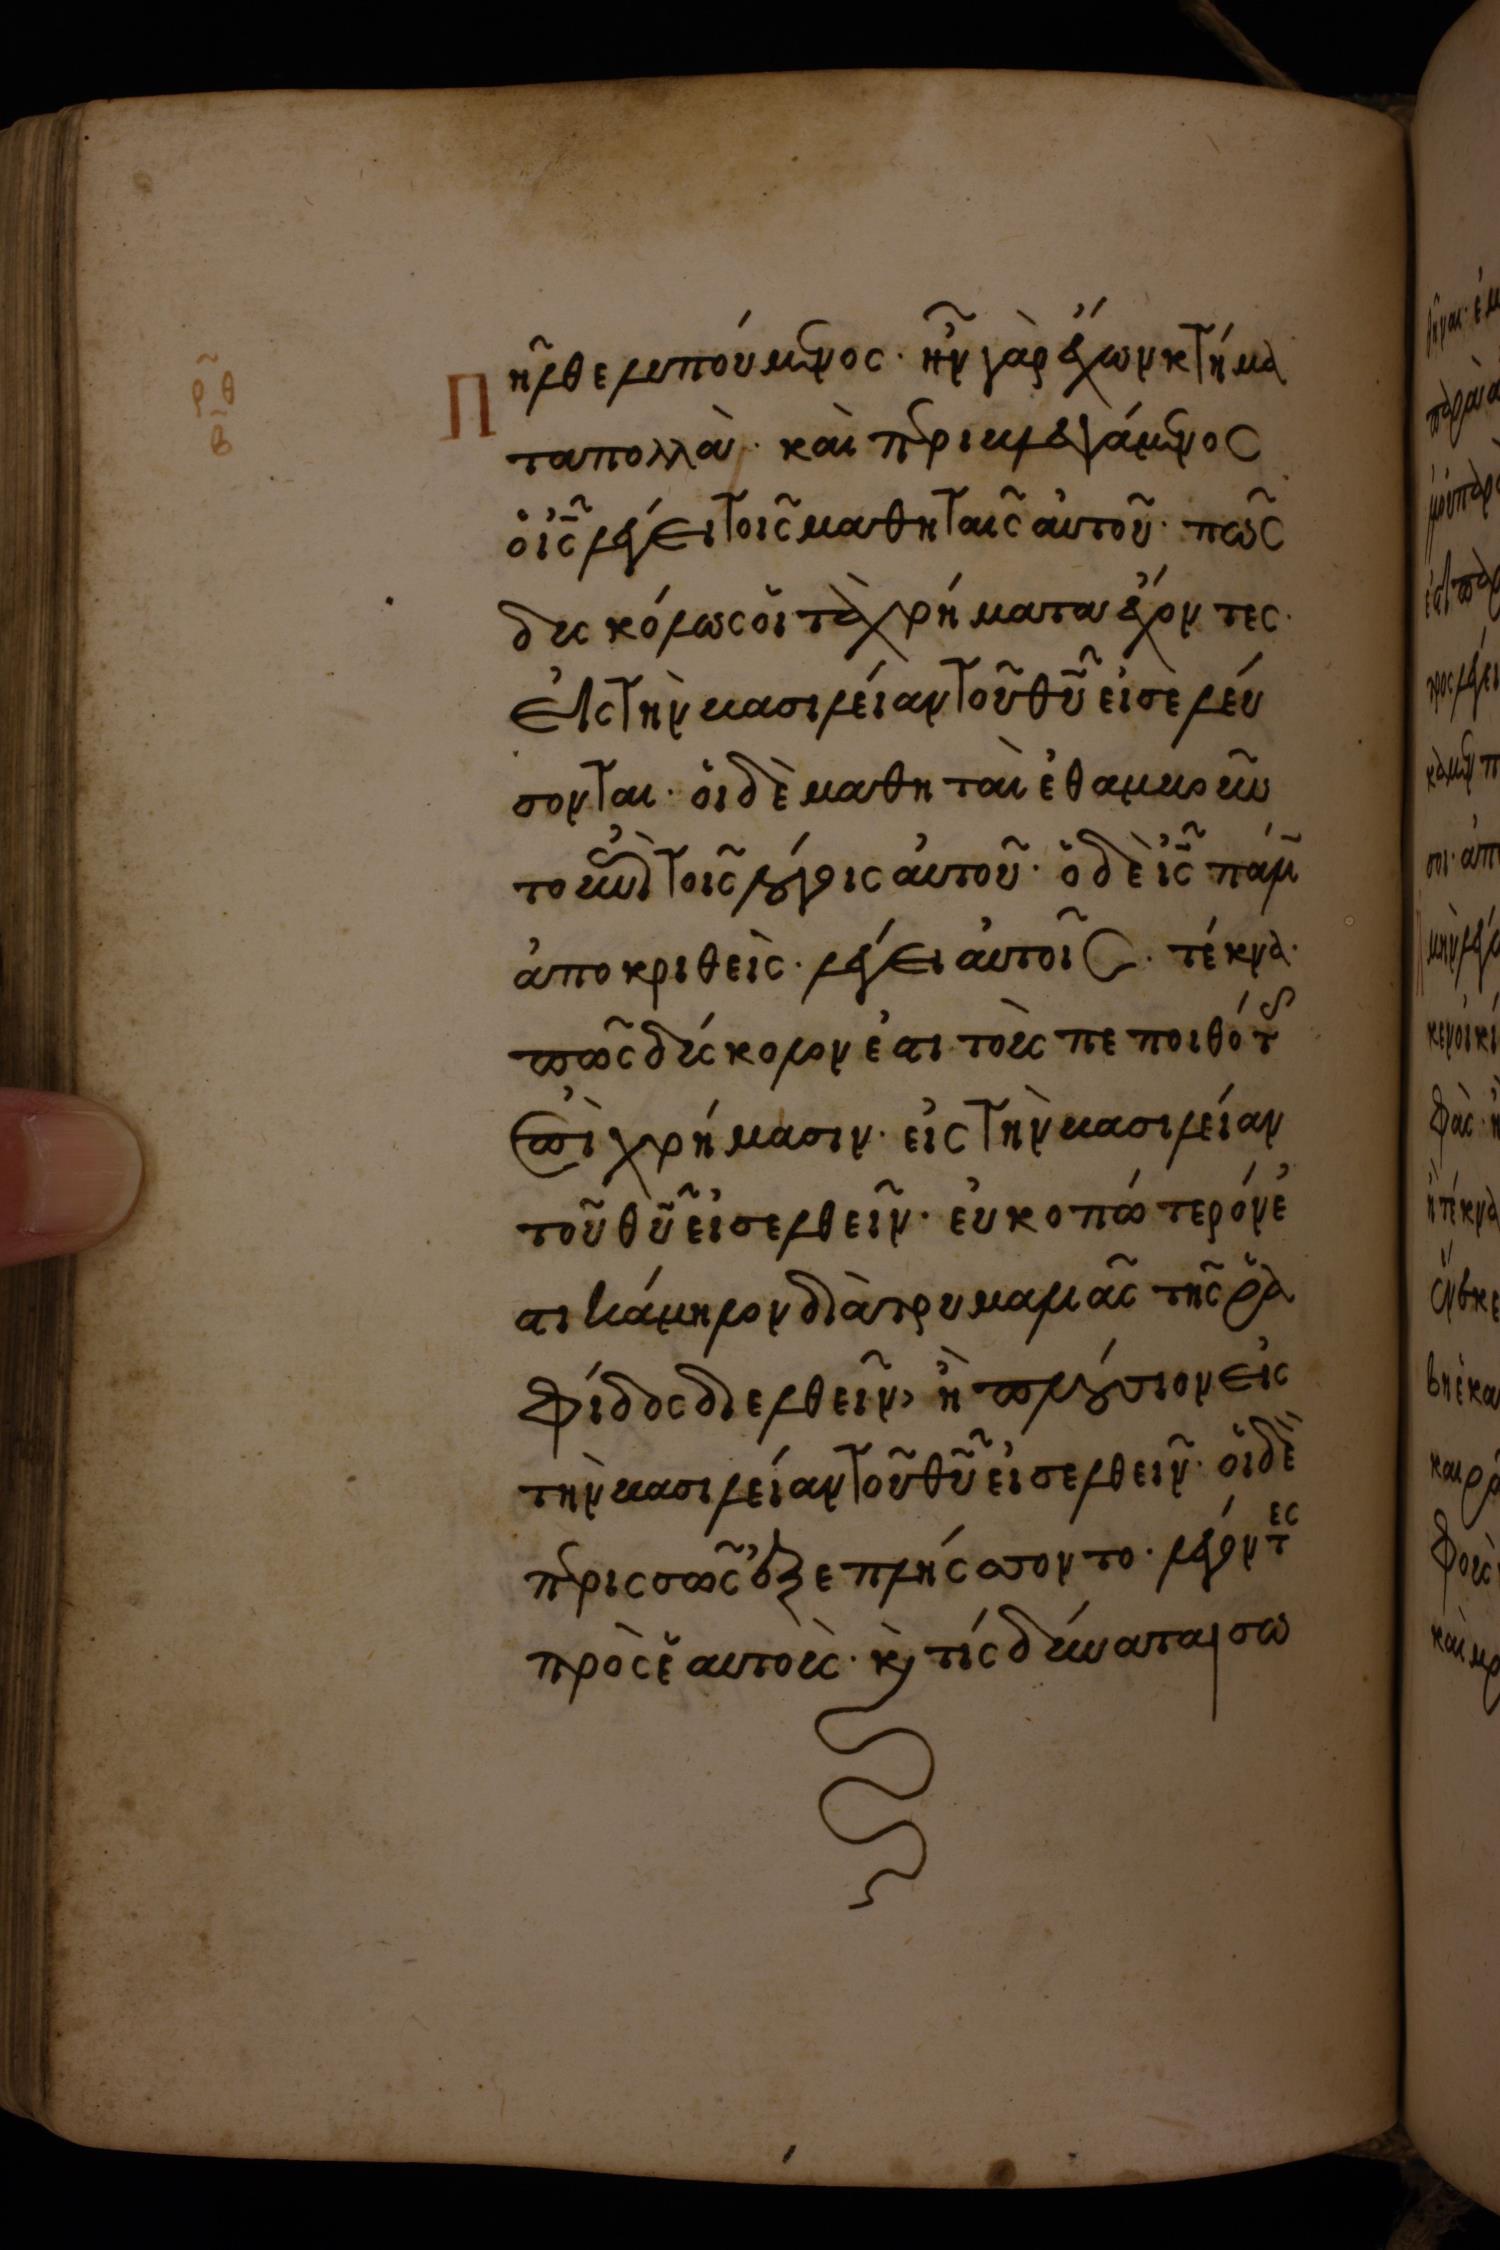 ρ̃θ
β̃
ῆλθε λυπούμενος· ἦν γὰρ ἔχων κτήμα
Π
τα πολλὰ· καὶ περιβλεψάμενος
ὁ ι̅ς̅ λέγει τοῖς μαθηταῖς αὐτοῦ· πῶς
δυσκόλως οἱ τὰ χρήματα ἔχοντες·
εἰς τὴν βασιλείαν τοῦ θ̅υ̅ εἰσελεύ
σονται· οἱ δὲ μαθηταὶ ἐθαμβοῦν
το ἐπὶ τοῖς λόγοις αὐτοῦ· ὁ δὲ ι̅ς̅ πάλιν
ἀποκριθεὶς· λέγει αὐτοῖς· τέκνα·
πῶς δύσκολον ἐστι τοὺς πεποιθότας
ἐπὶ χρήμασιν· εἰς τὴν βασιλείαν
τοῦ θ̅υ̅ εἰσελθεῖν· εὐκοπώτερόν ἐ
στι κάμηλον διὰ τρυμαλιᾶς τῆς ῥα
φίδος διελθεῖν, ἢ πλούσιον εἰς
τὴν βασιλείαν τοῦ θ̅υ̅ εἰσελθεῖν· οἱ δὲ
περισσῶς ἐξεπλήσσοντο· λέγοντες
πρὸς ἑαυτοὺς· κ̀ τίς δύναται σω